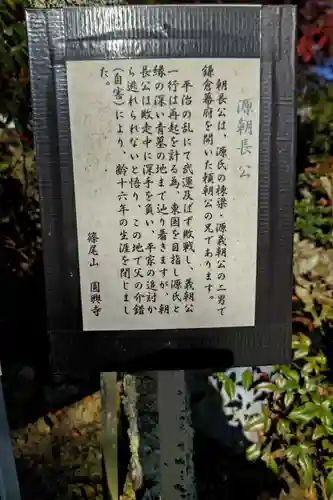 源朝長公
朝長公は、源氏の棟梁・源義朝公の二男で
鎌倉幕府を開いた頼朝公の兄であります。
平治の乱にて武運及ばず敗戦し、義朝公
一行は再起を計る為、東国を目指し源氏と
縁の深い青墓の地まで辿り着きますが、朝
長公は敗走中に深手を負い、平家の追討か
ら逃れられないと悟り、この地で父の介錯
(自害)により、齢十六年の生涯を閉じまし
た。
篠尾山　圓興寺